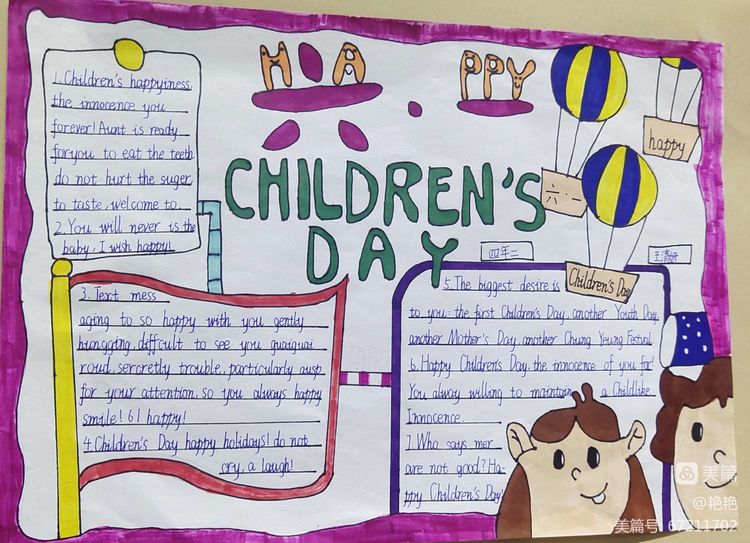 HAPPY
CHILDREN'S
DAY
happy
Children's Day
四年二
1. Children's happyiness,
the innocence you
forever! Aunt is ready
for you to eat the teeth
do not hurt the suger
to taste, welcome to
2. You will never is the
baby, I wish happy!
3. Text mess
aging to so happy with you gently
hungging, difficult to see you guaiguai
roud, sercretly trouble, particularly ausp
for your attention, so you always happy
smile! 61 happy!
4. Children's Day happy holidays! do not
cry, a laugh!
5. The biggest desire is
to you: the first Children's Day, another Youth Day,
another Mother's Day, another Chung Yeung Festival
6. Happy Children's Day, the innocence of you for
You alway willing to maintain a Childlike
Innocence.
7. Who says mer
are not good? Ha-
ppy Children's Day!
美篇
@艳艳
美篇号 67211702